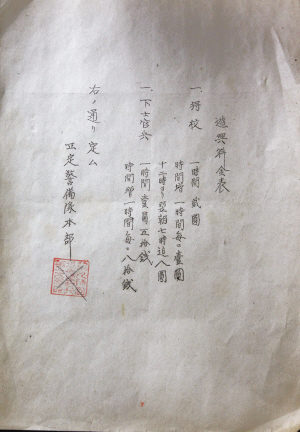 遊興料金表
一、将校 一時間 貳圓
時間増 一時間每ニ壹圓
十二時ヨリ翌朝七時迠八圓
一、下士官兵 一時間 壹圓五拾銭
時間増 一時間每ニ八拾銭
右ノ通リ定ム
正定警備隊本部